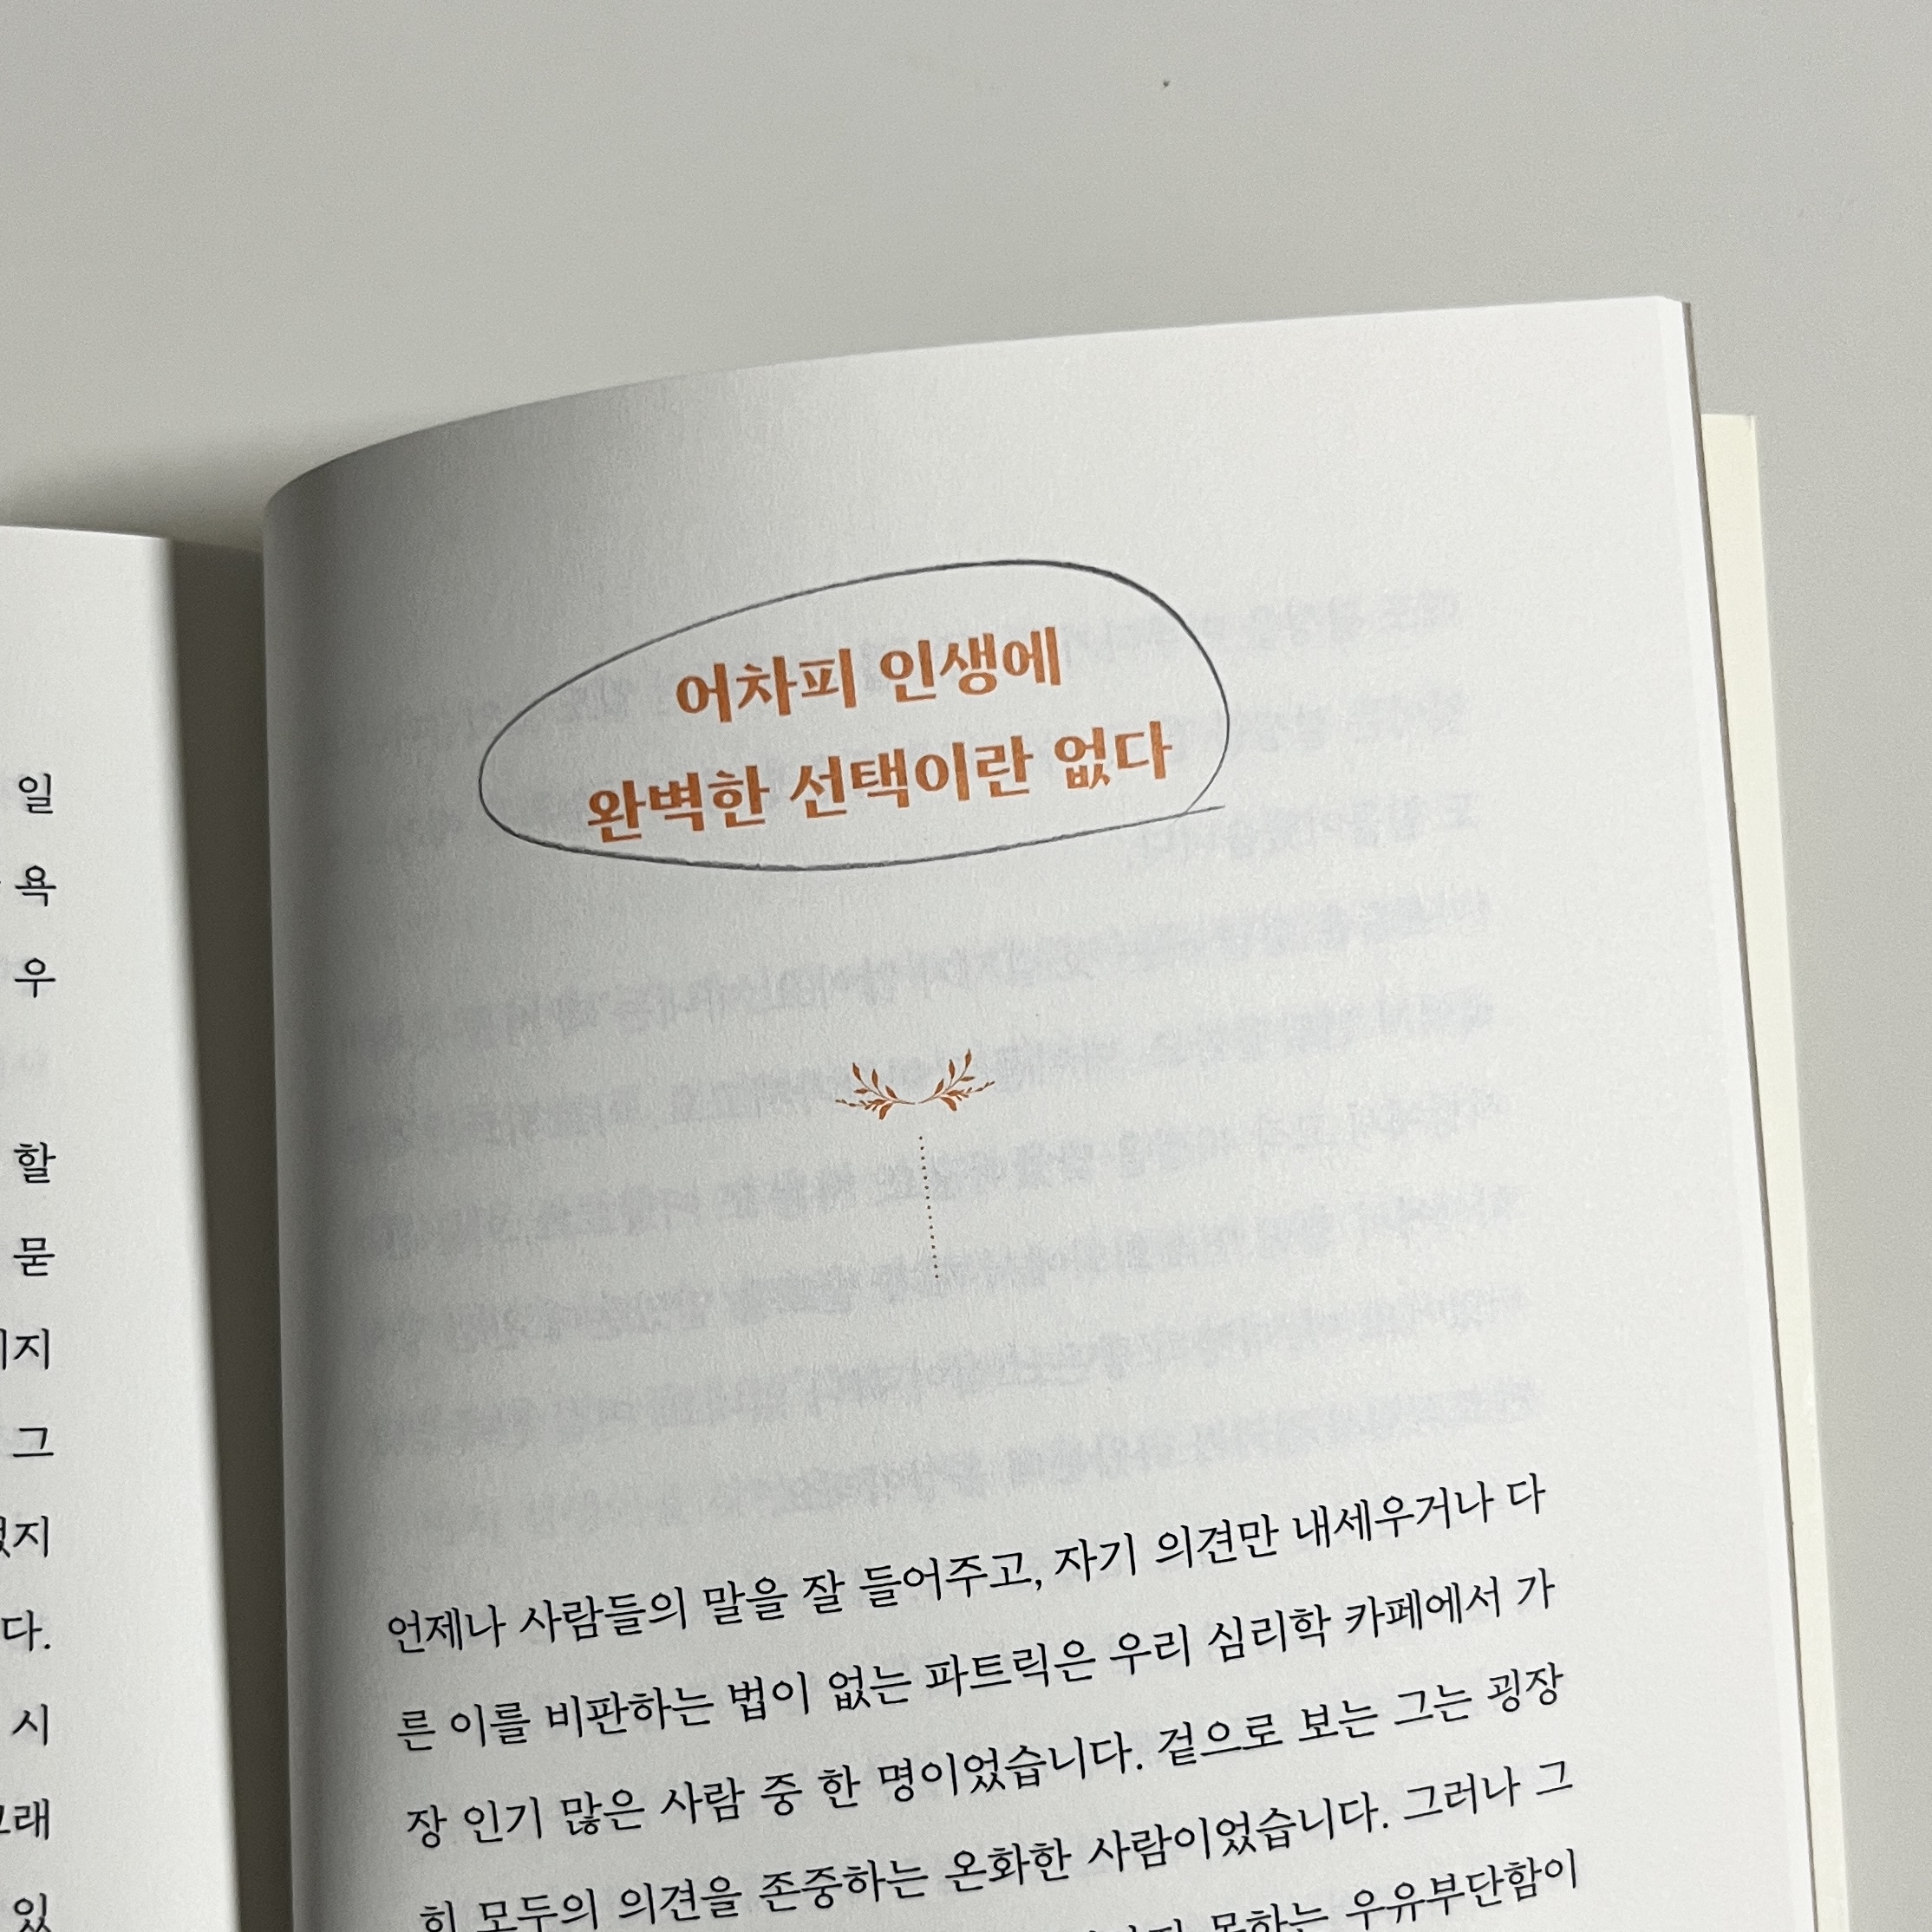 일
욕
우
할
묻
지
그
지
다.
시
래
있
어차피 인생에
완벽한 선택이란 없다
언제나 사람들의 말을 잘 들어주고, 자기 의견만 내세우거나 다
른 이를 비판하는 법이 없는 파트릭은 우리 심리학 카페에서 가
장 인기 많은 사람 중 한 명이었습니다. 겉으로 보는 그는 굉장
히 모두의 의견을 존중하는 온화한 사람이었습니다. 그러나 그
못하는 우유부단함이